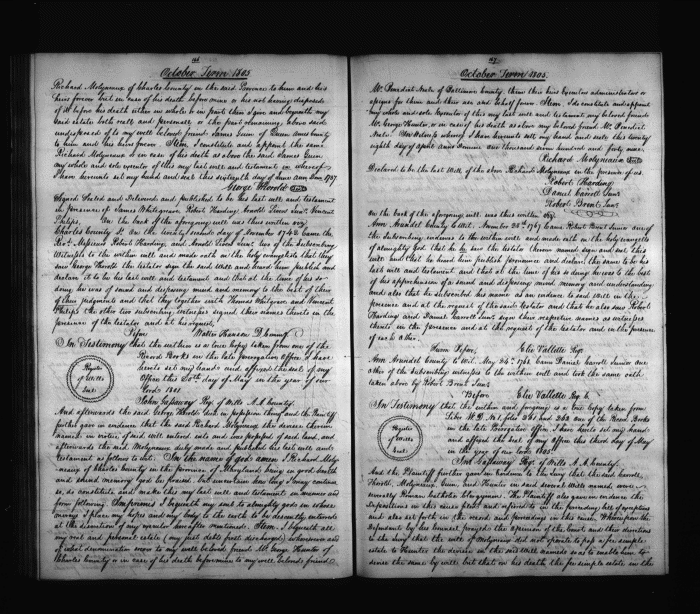 October Term 1805
Richard Molyneaux of Charles County in the said Province to him and his
heirs forever but in case of his death before mine or his not having disposed
of it before his death either in whole or in part then I give and bequeath my
said estate both real and personal or the part remaining above said
undisposed of to my well beloved friend James Quin of Queen Anns County
to him and his heirs forever Item, I constitute and appoint the same
Richard Molyneaux or in case of his death as above the said James Quin
my whole and sole executor of this my last will and testament in whereof
I have hereunto set my hand and seal this sixteenth day of June Ann Dom
George Thorold
Signed Sealed and Delivered and published to be his last will and testament
in presence of Thomas Whitgrave, Robert Harding, Arnold Livers Vincent
Philips. On the back of the aforegoing will was thus written
Charles County St. On the twenty second day of November 1742 Came the
Revd. Robert Harding, and Arnold Livers two of the subscribing
Witnesses to the within will and made oath on the holy evangelists that they
saw George Thorold the testator sign the said Will and heard him publish and
declare it to be his last will and testament and that at the time of his so
doing he was of sound and disposing mind and memory to the best of their
judgment and that they together with Thomas Whitgrave and Vincent
Philips the other two subscribing witnesses signed their names thereto in the
presence of the testator and at his request.
Before Walter Hanson
In Testimony that the within is a true copy taken from one of the
Record Books in the late prerogative Office. I have
hereto set my hand and affixed the seal of my
Office this day of May in the year of our
lord
Register
of Wills
Seal
John Gassaway Reg. of Wills A. A. County
And afterwards the said George Thorold died in possession thereof and the Plaintiff
further gave in evidence that the said Richard Molyneaux the devisee therein
named in virtue of said will entered into and was possessed of said land, and
afterwards the said Molyneaux duly made and published his last will and
testament as follows to wit. In the name of god amen I Richard Moly
neaux of Charles County in the province of Maryland being in good health
and sound memory God be praised. But uncertain how long I may continue
so, do constitute and make this my last will and testament in manner and
form following. Imprimis I bequeath my soul to almighty god in whose
mercy I place my hopes and my body to the earth to be decently interred
at the discretion of my executor hereafter mentioned. Item. I bequeath all
my real and personal estate (my just debts first discharged) wheresoever and
of what denomination soever to my well beloved friend Mr. George Hunter of
Charles County or in case of his death before mine to my well beloved friend
October Term 1805.
Mr. Benedict Neale of Baltimore County them their heirs Executors administrators or
assigns for them and their use and behalf forever. Item. I do constitute and appoint
my whole and sole Executor of this my last will and testament my beloved friend
Mr. George Hunter or in case of his death as above my beloved friend Mr. Benedict
Neale. In Witness whereof I have hereunto set my hand and seal this twenty
eighth day of April anno Domini one thousand seven hundred and forty nine.
Richard Molyneaux
Declared to be the last Will of the above Richard Molyneaux in the presence of us.
Robert Harding
Daniel Carroll Junr.
Robert Brent Junr.
On the back of the aforegoing will was thus written
Ann Arundel County to wit. November 26th 1767 Came Robert Brent Junior one of
the subscribing evidences to the within will and made oath on the holy evangels
of almighty God that he saw the testator therein named sign and seal this
will and that he heard him publish pronounce and declare the same to be his
last will and testament and that at the time of his so doing he was to the best
of his apprehension of a sound and disposing mind, memory and understanding
and also that he subscribed his name as an evidence to said will in the
presence and at the request of the said testator and that he also saw Robert
Harding and Daniel Carroll Junr. sign their respective names as witnesses
thereto in the presence and at the request of the testator and in the presence
of each other.
Sworn before, Elie Vallette Reg.
Ann Arundel County to wit. May 24th 1768 Came Daniel Carroll Junior one
other of the subscribing witnesses to the within will and took the same oath
taken above by Robert Brent Junr.
Before Elie Vallette Reg.
In Testimony that the within and foregoing is a true copy taken from
Liber W. D. folio 261 and 262 one of the Record Books
in the late Prerogative Office I have hereto set my hand
and affixed the seal of my Office this third day of May
in the year of our lord 1805.
Register
of Wills
Seal
John Gassaway Reg. of Wills A. A. County.
And the Plaintiff further gave in evidence to the jury that the said
Thorold, Molyneaux, Quin, and Hunter in said several Wills named were
severally Roman Catholic Clergymen. The Plaintiff also gave in evidence the
depositions in this cause filed and referred to in the preceding bill of exceptions
and also set forth in the record and proceedings in this cause. Whereupon the
defendant by his counsel prayed the opinion of the Court and their direction
to the jury that the will of Molyneaux did not operate to pass a fee simple
estate to Hunter the devisee in the said Will named so as to enable him to
devise the same by will but that on his death the fee simple estate in the